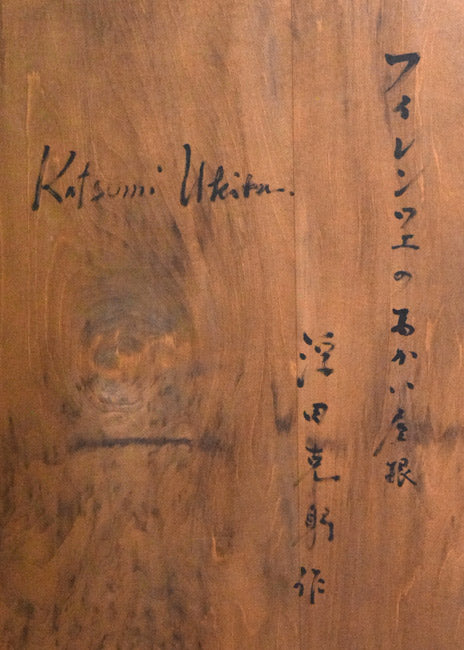 フィレンツェのあかい屋根
浮田克躬作
Katsumi Ukita.